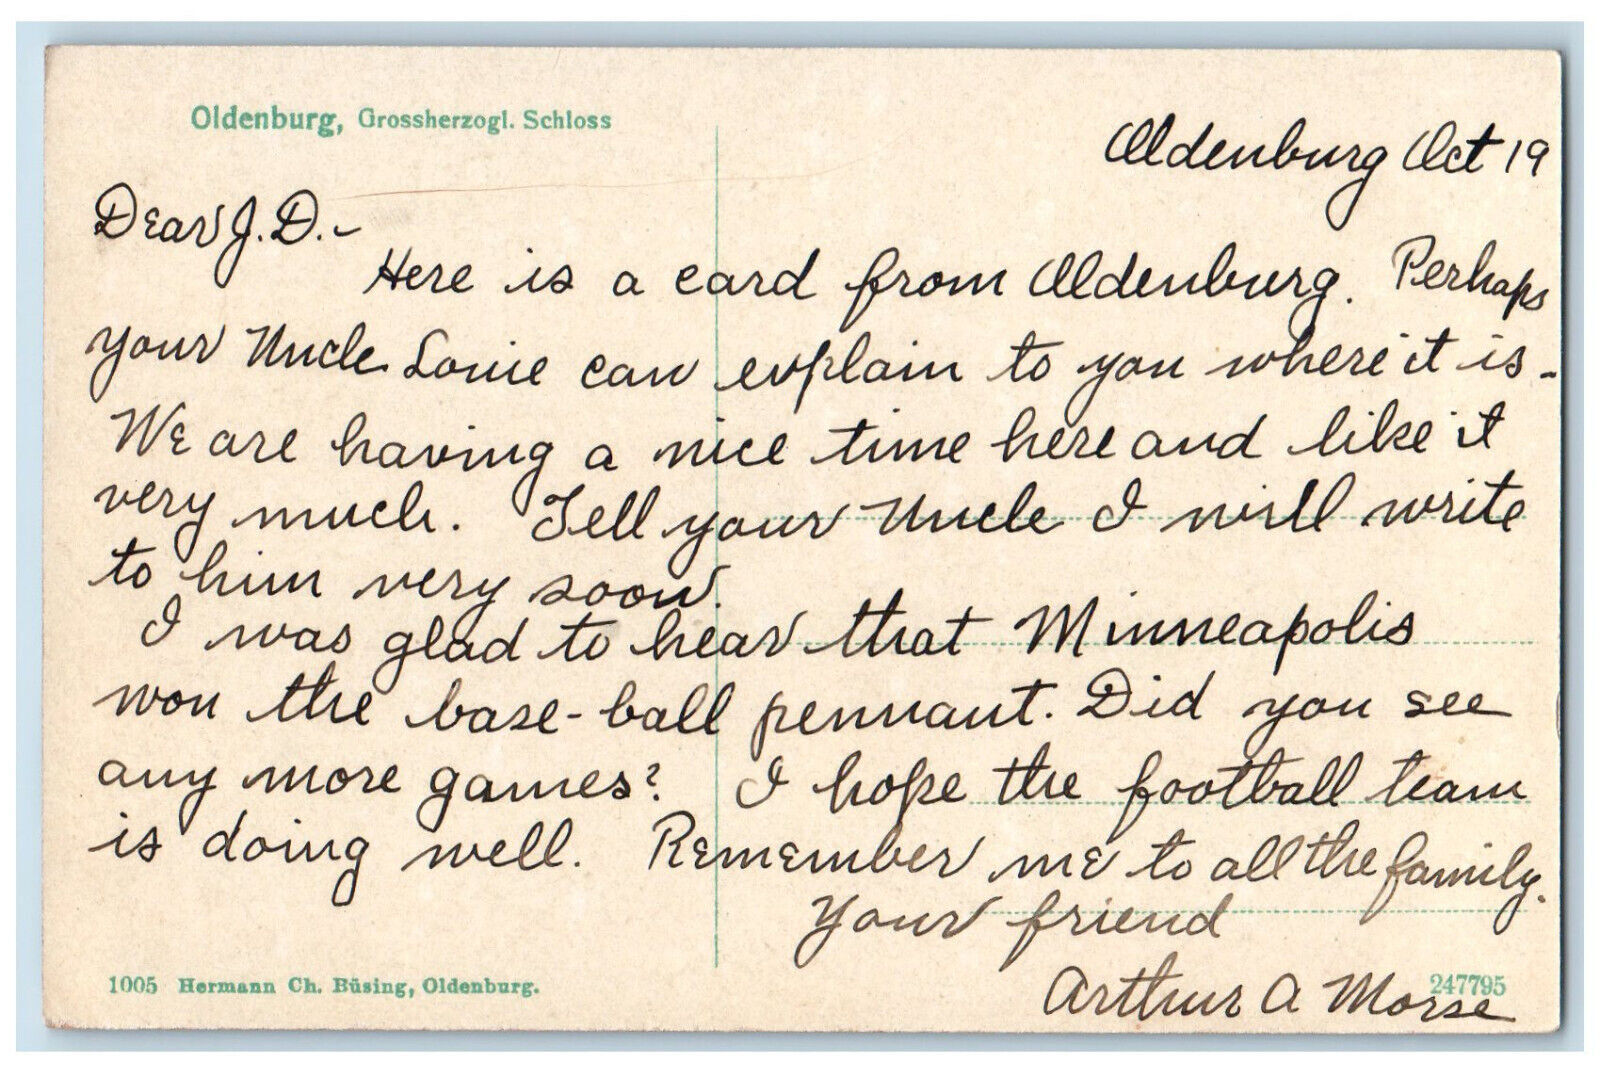 Oldenburg, Grossherzogl. Schloss
Oldenburg Oct 19
Dear J.D.-
Here is a card from Oldenburg. Perhaps
your Uncle Louie can explain to you where it is -
We are having a nice time here and like it
very much. Tell your Uncle I will write
to him very soon.
I was glad to hear that Minneapolis
won the base-ball pennant. Did you see
any more games? I hope the football team
is doing well. Remember me to all the family.
Your friend
Arthur A Morse
1005 Hermann Ch. Büsing, Oldenburg.
247795